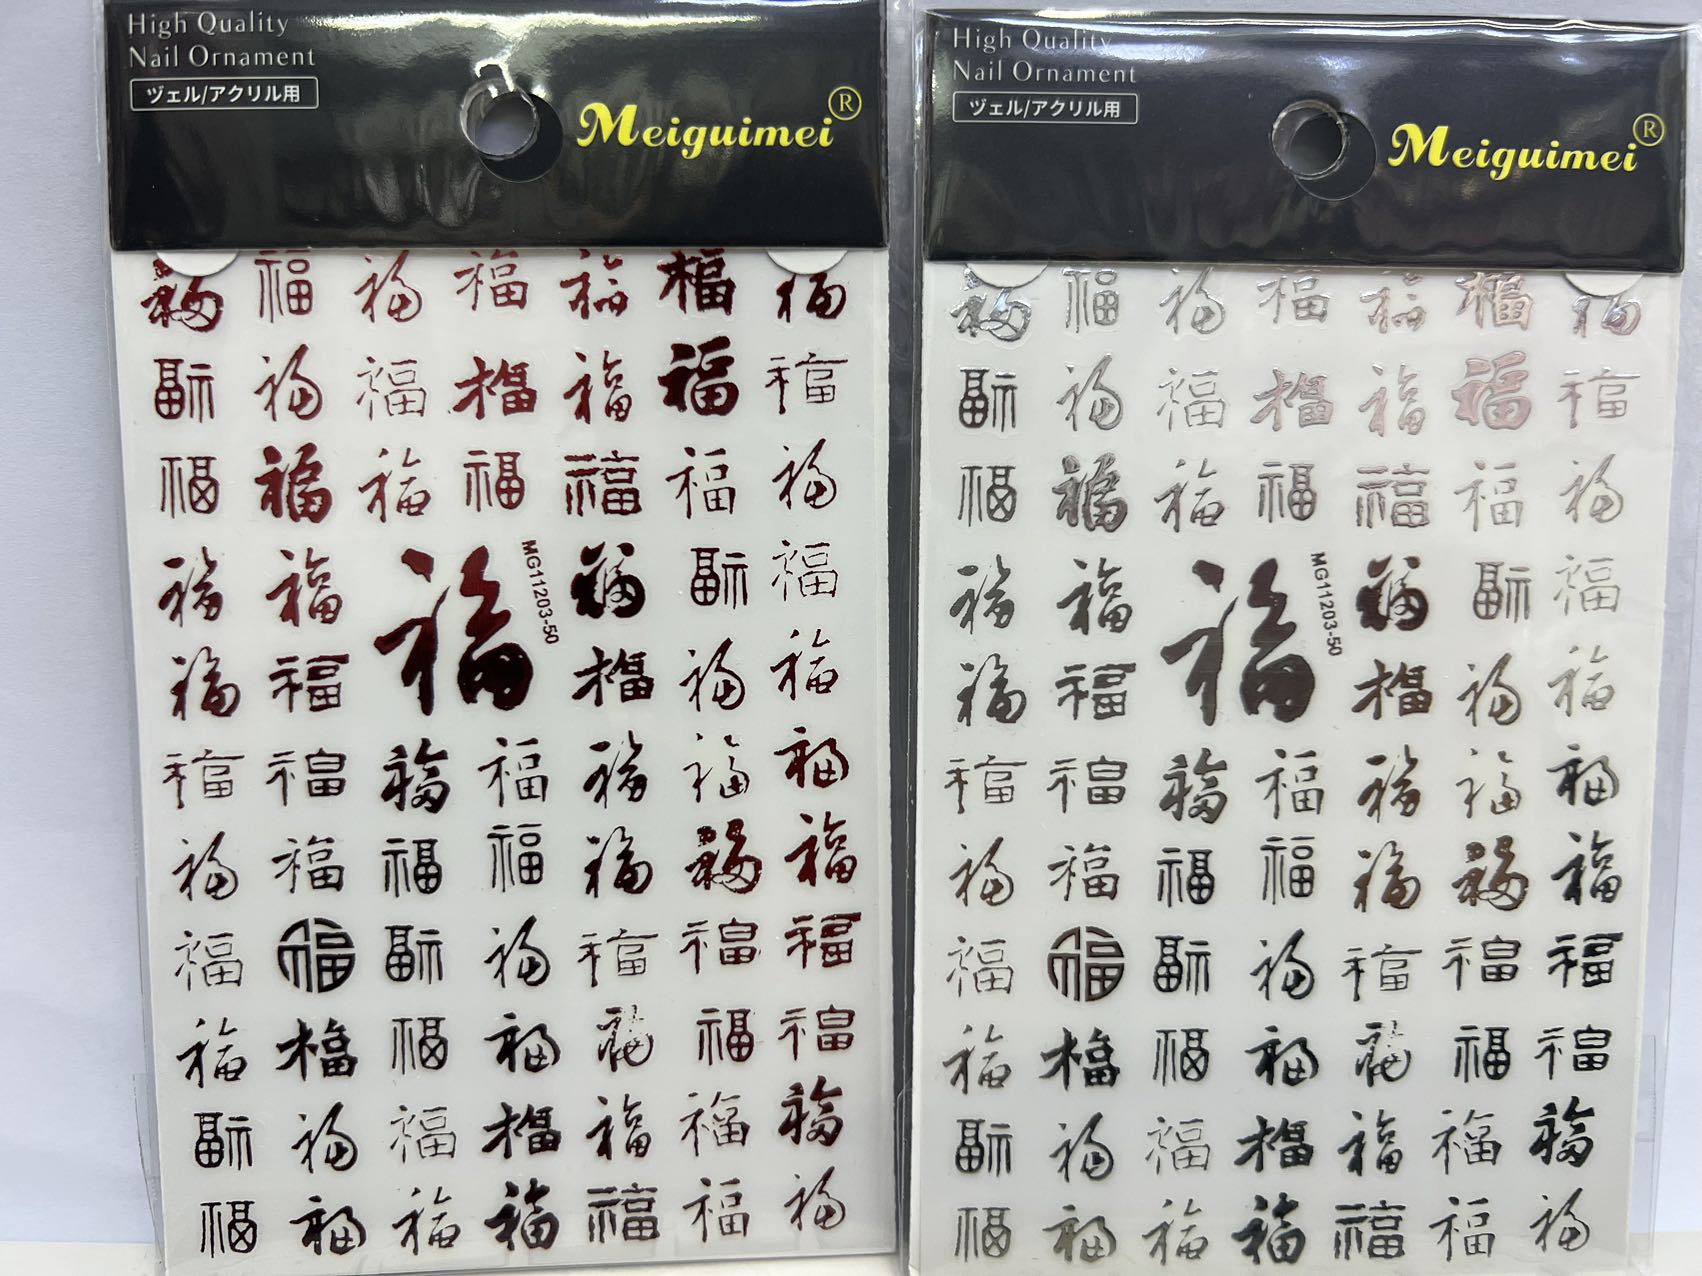 High Quality
Nail Ornament
ヅェル/アクリル用
Meiguimei®
福 福 福 福 福 福 福
福 福 福 福 福 福 福
福 福 福 福 福 福 福
福 福 福 MG11203-50 福 福 福
福 福 福 福 福
福 福 福 福 福 福 福
福 福 福 福 福 福 福
福 福 福 福 福 福 福
福 福 福 福 福 福 福
福 福 福 福 福 福 福
福 福 福 福 福 福 福
High Quality
Nail Ornament
ヅェル/アクリル用
Meiguimei®
福 福 福 福 福 福 福
福 福 福 福 福 福 福
福 福 福 福 福 福 福
福 福 福 MG11203-50 福 福 福
福 福 福 福 福
福 福 福 福 福 福 福
福 福 福 福 福 福 福
福 福 福 福 福 福 福
福 福 福 福 福 福 福
福 福 福 福 福 福 福
福 福 福 福 福 福 福